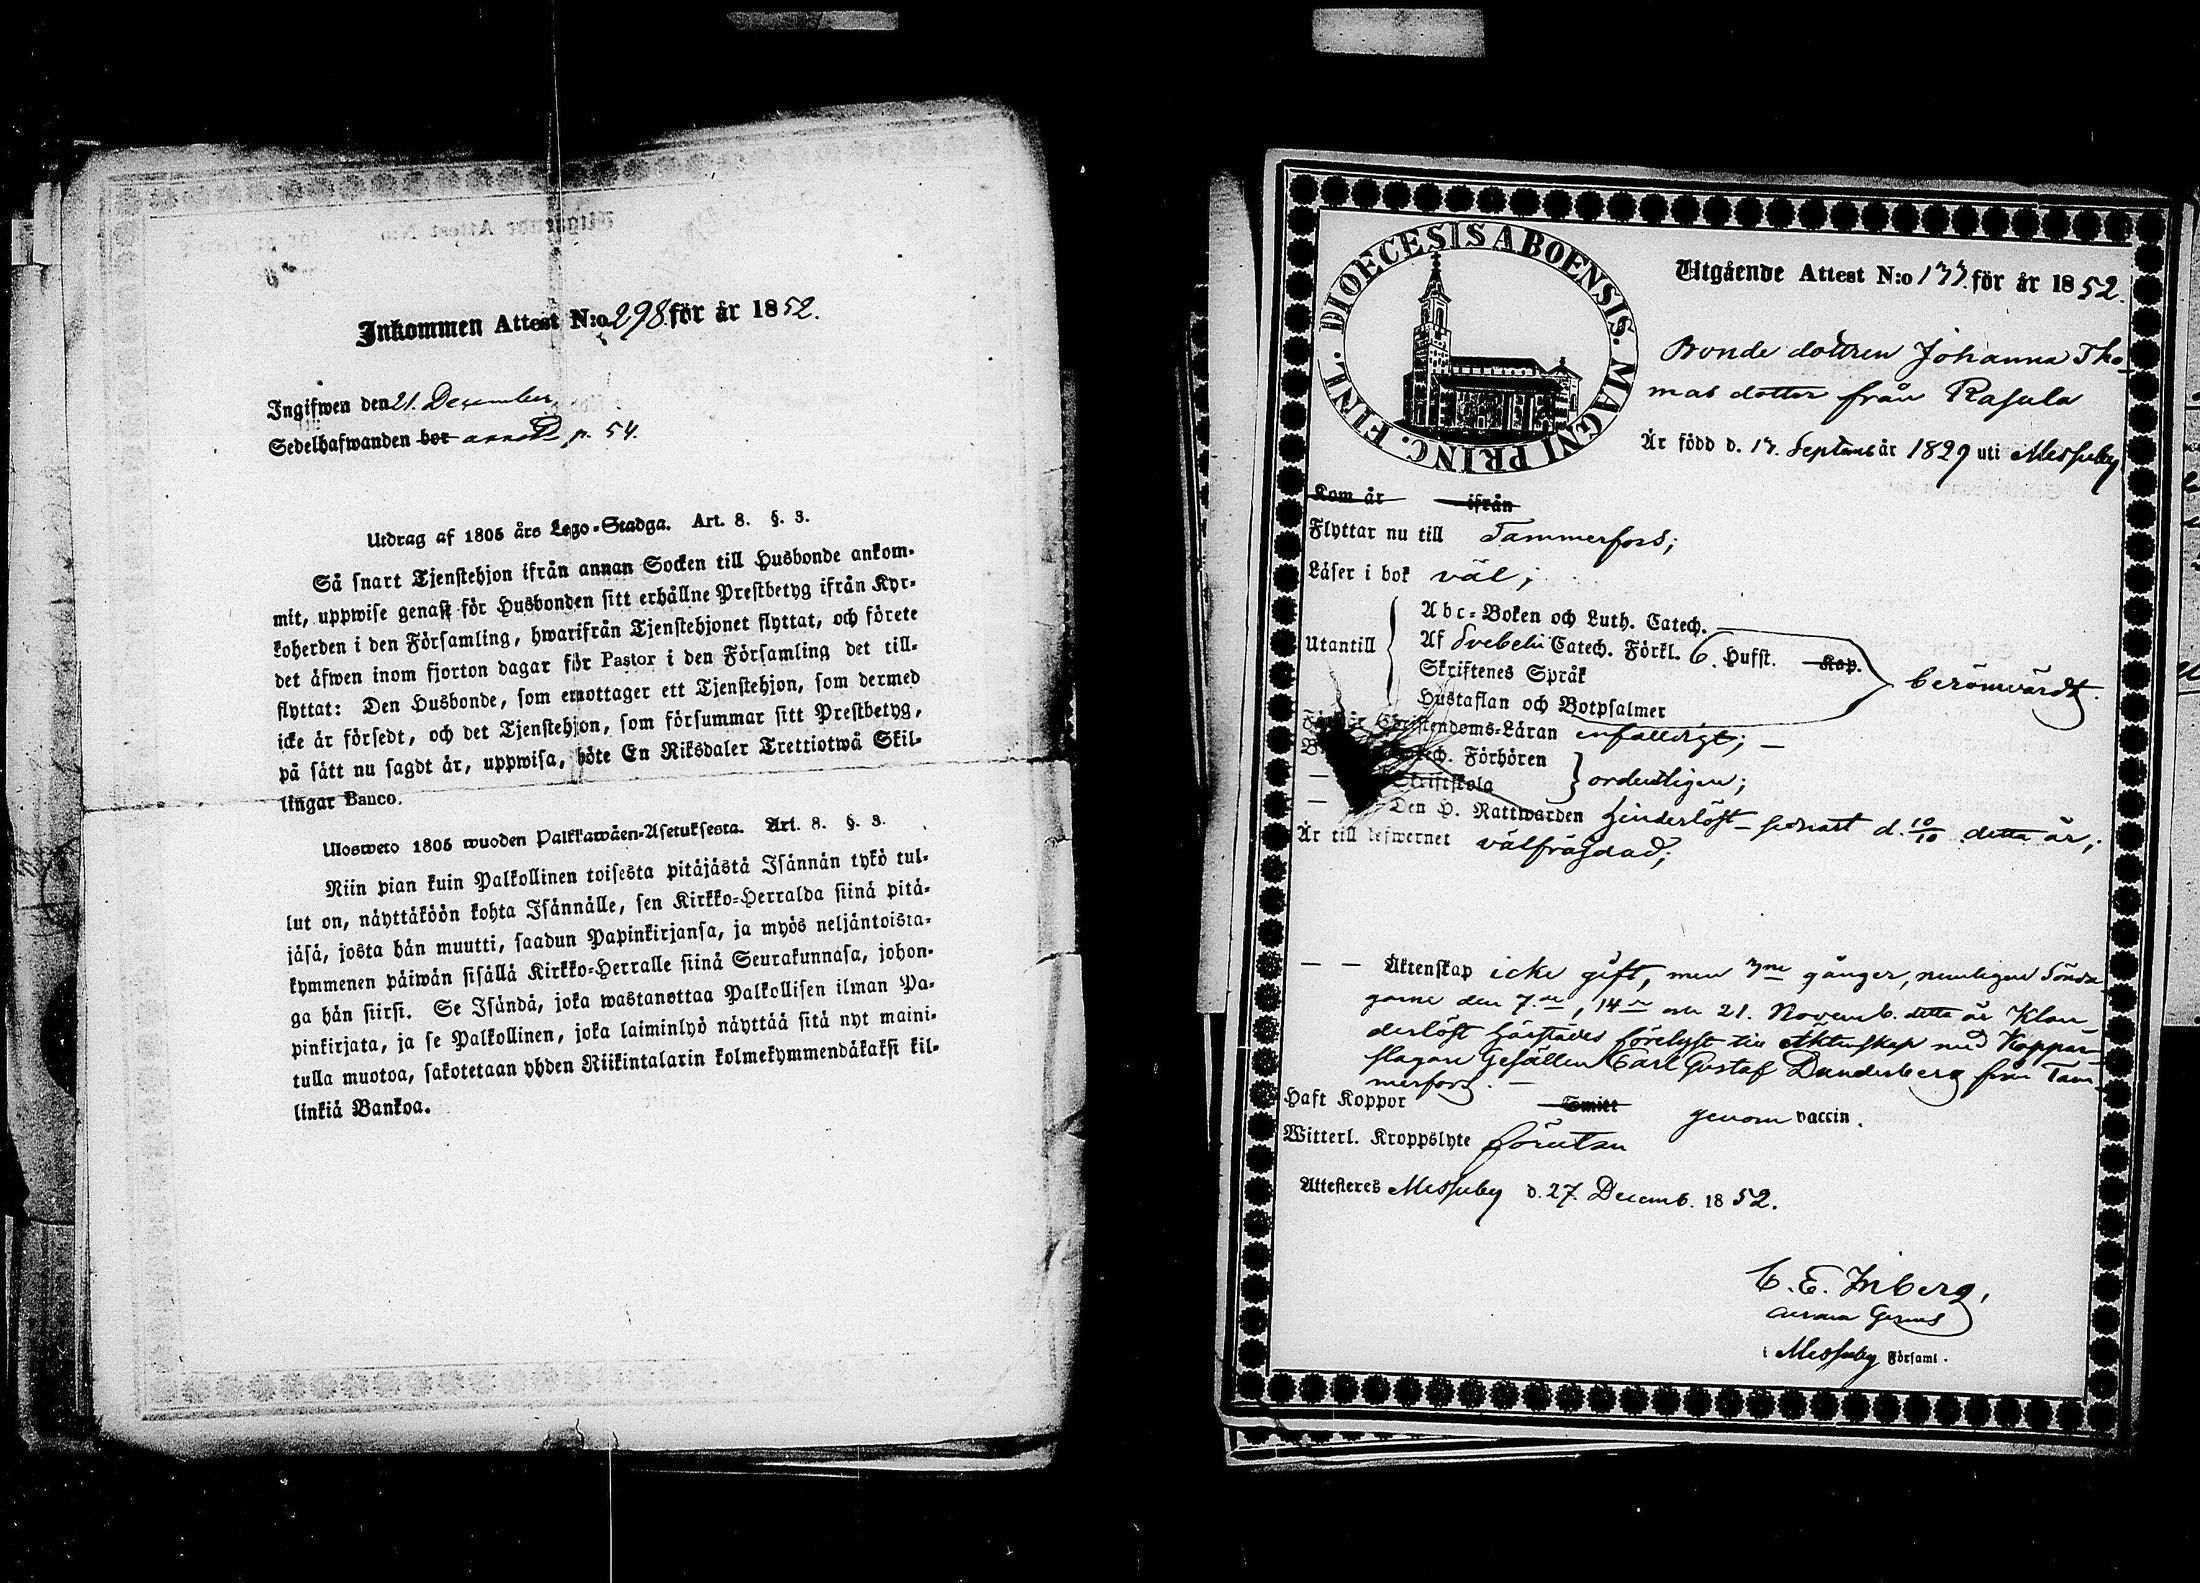 Inkommen Attest N:o 298. för år 1852.
Ingifwen den 21. December
Sedelhafwanden bor p. 54.
Utdrag af 1805 års Lego-Stadga. Art. 8. §. 3.
Så snart Tjenstehjon ifrån annan Socken till Husbonde ankom-
mit, uppwise genast för Husbonden sitt erhållne Prestbetyg ifrån Kyr-
koherden i den Församling, hwarifrån Tjenstehjonet flyttat, och förete
det äfwen inom fjorton dagar för Pastor i den Församling det till-
flyttat: Den Husbonde, som emottager ett Tjenstehjon, som dermed
icke är försedt, och det Tjenstehjon, som försummar sitt Prestbetyg,
på sätt nu sagdt är, uppwisa, böte En Riksdaler Trettiotwå Skil-
lingar Banco.
Ulosweto 1805 wuoden Palkkawäen-Asetuksesta. Art. 8. §. 3.
Niin pian kuin Palkollinen toisesta pitäjästä Isännän tykö tul-
lut on, näyttäköön kohta Isännälle, sen Kirkko-Herralda siinä pitä-
jäsä, josta hän muutti, saadun Papinkirjansa, ja myös neljäntoista-
kymmenen päiwän sisällä Kirkko-Herralle siinä Seurakunnasa, johon-
ga hän siirsi. Se Isändä, joka wastanottaa Palkollisen ilman Pa-
pinkirjata, ja se Palkollinen, joka laiminlyö näyttää sitä nyt maini-
tulla muotoa, sakotetaan yhden Riikintalarin kolmekymmendäkaksi kil-
linkiä Bankoa.
DIOECESIS ABOENSIS. MAGNI PRINC. FINL.
Utgående Attest N:o 133. för år 1852.
Bonde dottren Johanna Tho-
mas dotter från Rasula
År född d. 13. Septemb år 1829 uti Messuby
Kom år ifrån
Flyttar nu till Tammerfors;
Läser i bok väl;
Abc-Boken och Luth. Catech.
Utantill Af Svebelii Catech. Förkl. 6. Hufst. Kap.
Skriftenes Språk berömvärdt.
Hustaflan och Botpsalmer
Christendoms-Läran enfaldigt; —
Catech. Förhören
— Skriftskola ordentligen;
— Den H. Nattwarden hinderlöst senast d. 10/10 detta år;
Är till lefwernet välfräjdad;
— — Äktenskap icke gift, men 3ne gånger, nemligen Sönda-
garne den 7de, 14de och 21. Novemb. detta år Klan-
derlöst härstädes förelyst till Äktenskap med Koppar-
slagare Gesällen Carl Gustaf Dunderberg från Tam-
merfors. —
Haft Koppor Smitt genom vaccin.
Witterl. Kroppslyte förutan
Attesteras Messuby d. 27. Decemb. 1852.
C. E. Inberg,
i Messuby Församl.